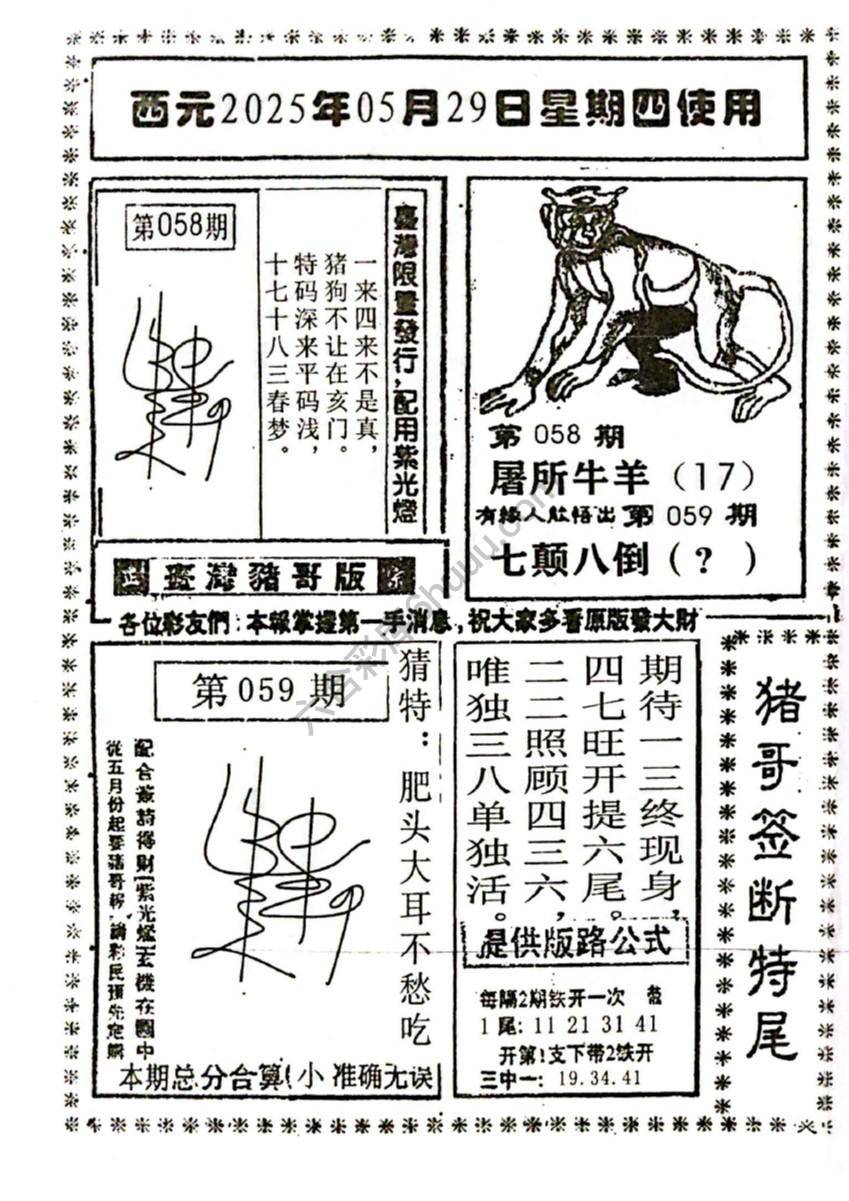 西元2025年05月29日星期四使用
第058期
臺灣限量發行，配用紫光燈
一来四来不是真，
猪狗不让在亥门。
特码深来平码浅，
十七十八三春梦。
臺灣豬哥版
第 058 期
屠所牛羊（17）
有緣人肽悟出 第 059 期
七颠八倒（？）
各位彩友們：本報掌握第一手消息，祝大家多看原版發大財
第 059 期
猜特：肥头大耳不愁吃
配合簽詩得財[紫光燈]玄機在圖中
從五月份起要豬哥報，請彩民預先定購
本期总分合算(小 准确无误
期待一三终现身，
四七旺开提六尾。
二二照顾四三六，
唯独三八单独活。
提供版路公式
每隔2期铁开一次
1尾：11 21 31 41
开第1支下带2铁开
三中一：19.34.41
猪哥签断特尾
六合彩库6huuu.com